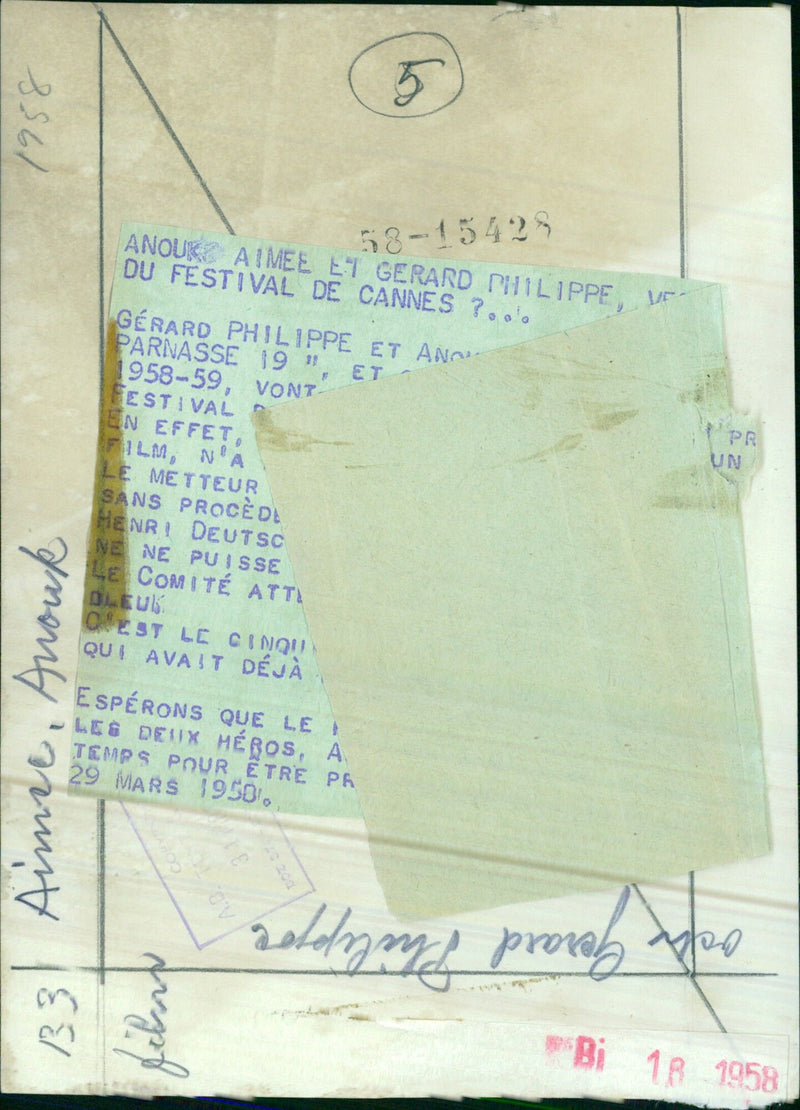 1958
5
58-15428
ANOUK AIMEE ET GERARD PHILIPPE, VE
DU FESTIVAL DE CANNES ?...
GÉRARD PHILIPPE ET ANOU
PARNASSE 19 ", ET
1958-59, VONT
FESTIVAL D
EN EFFET,
FILM, N'A
LE METTEUR
SANS PROCÈDE
HENRI DEUTSC
NE NE PUISSE
LE COMITÉ ATTE
BLEUE
C'EST LE CINQUI
QUI AVAIT DÉJÀ
PR
UN
ESPÉRONS QUE LE
LES DEUX HÉROS, A
TEMPS POUR ÊTRE PR
29 MARS 1958.
Aimee, Anouk
och Gerard Philippe
133
film
Bi 18 1958